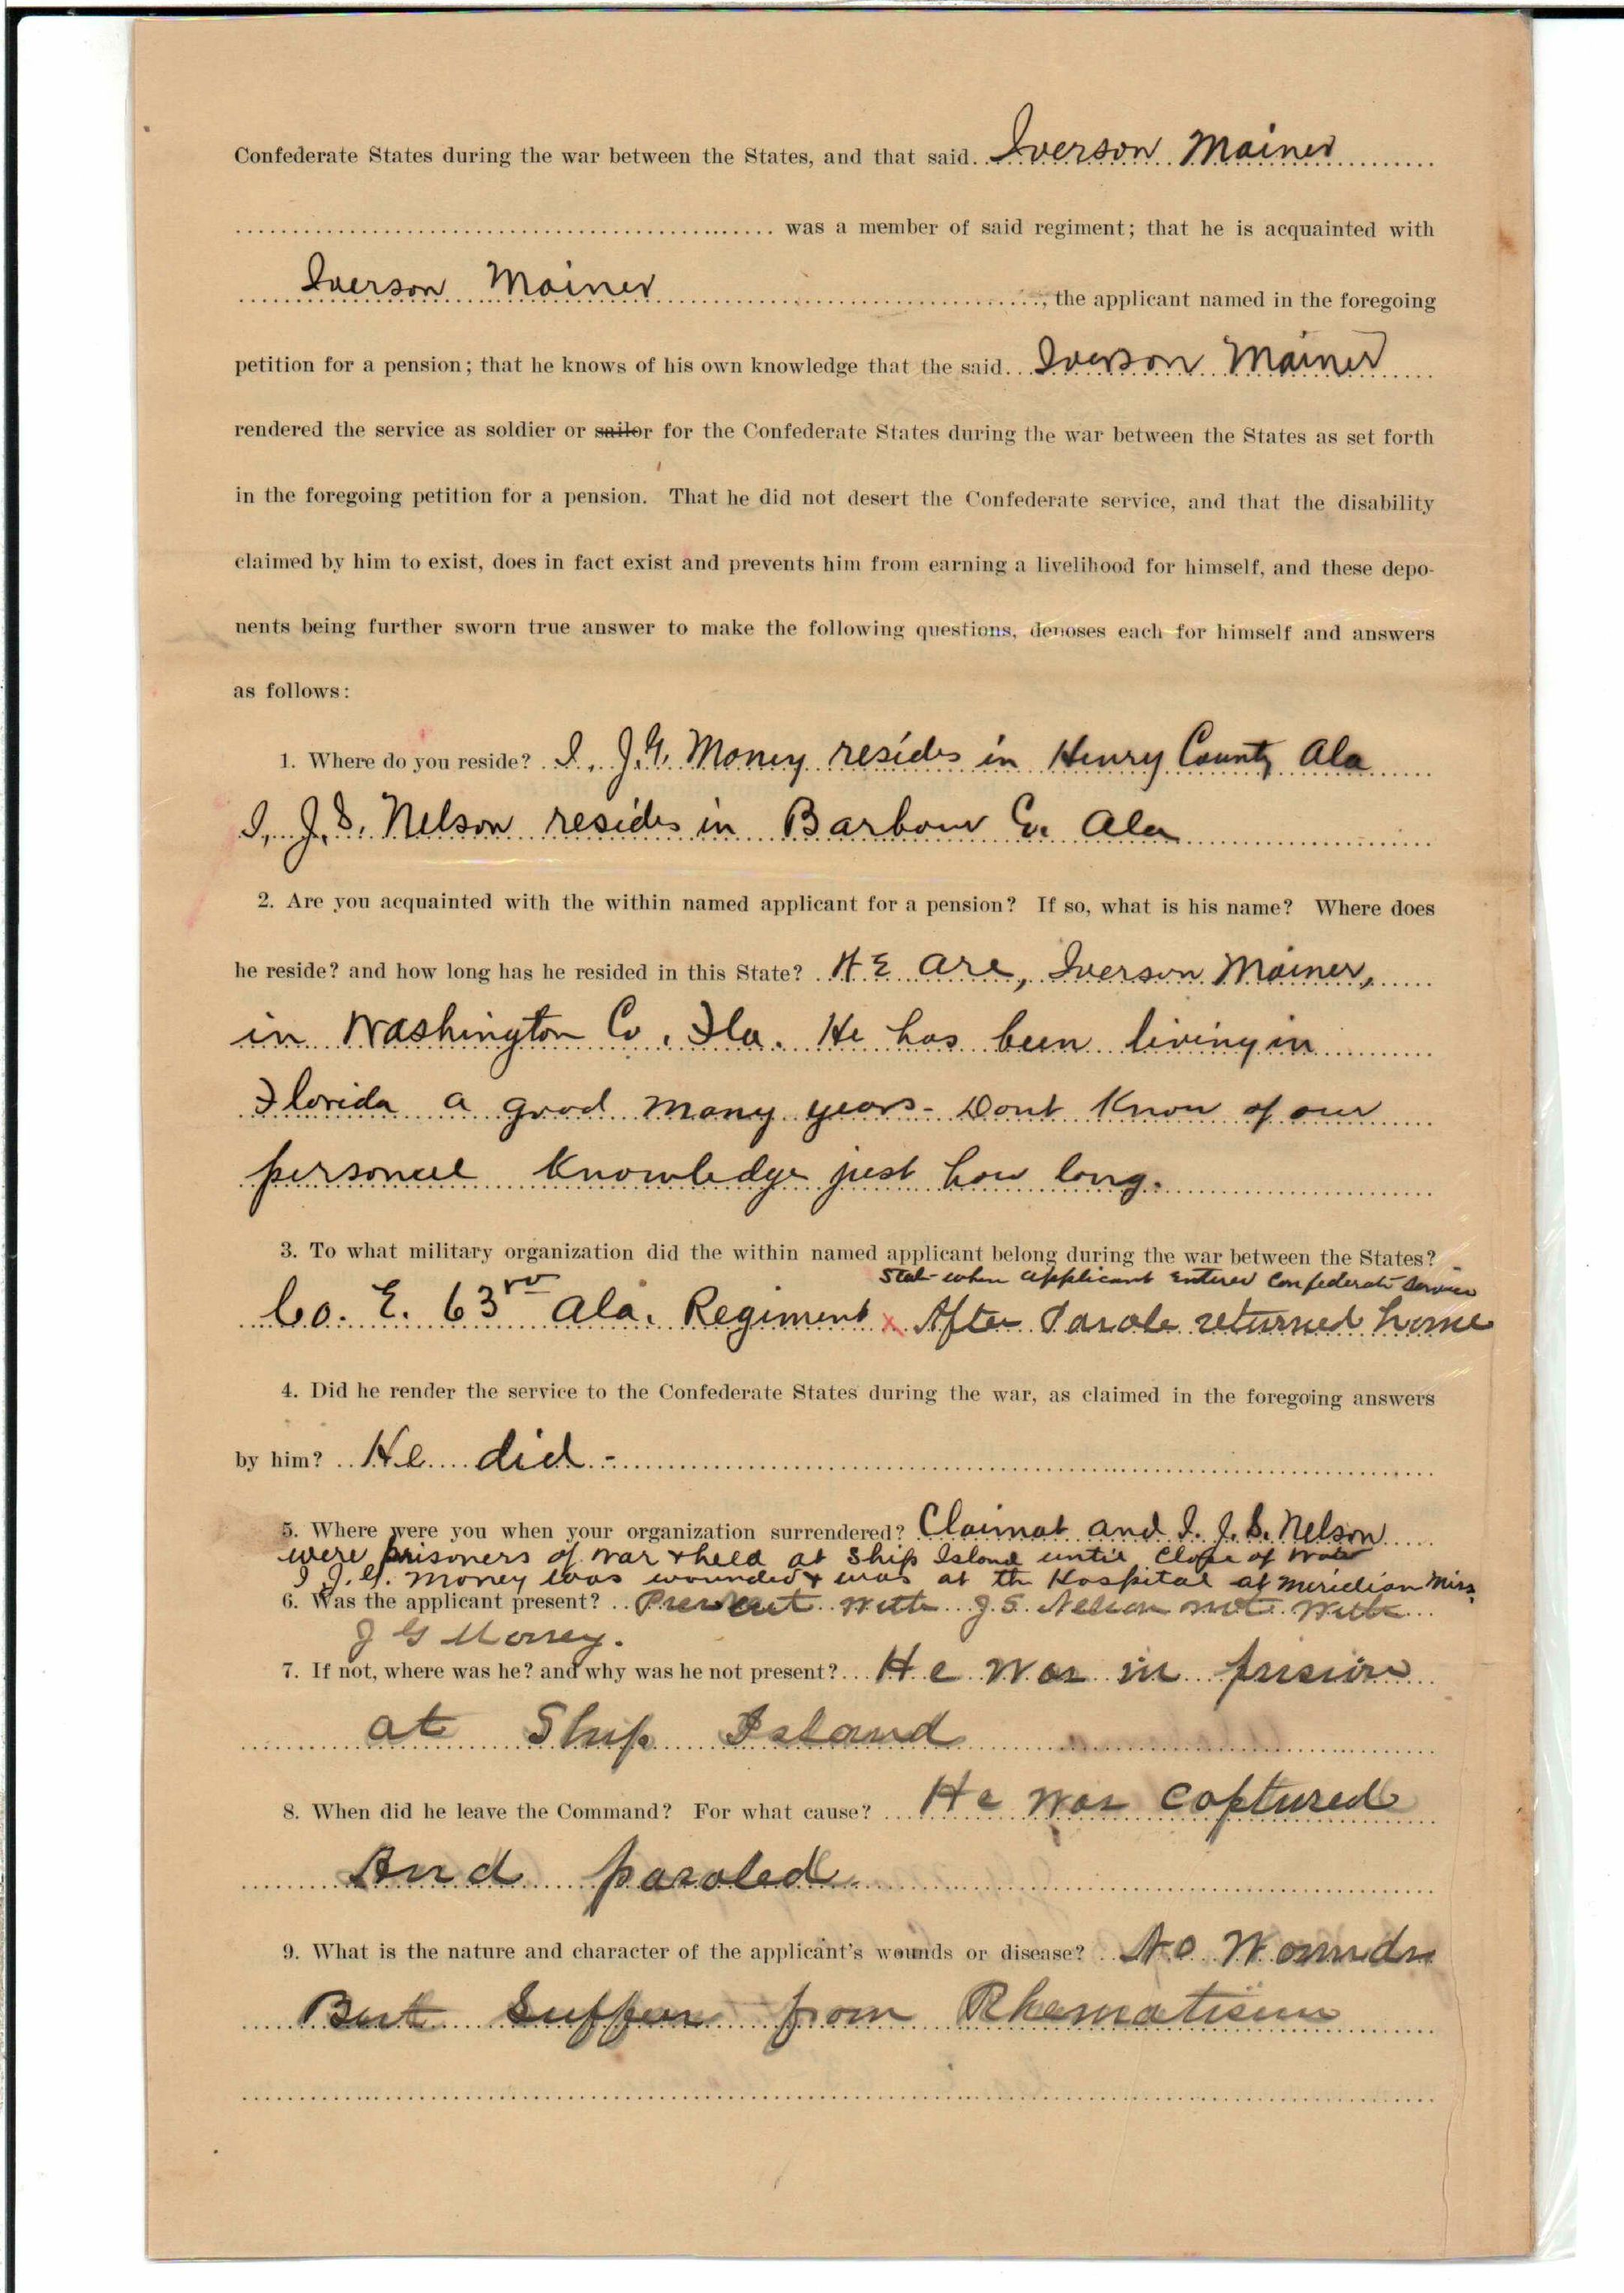 Confederate States during the war between the States, and that said Iverson Mainer
was a member of said regiment; that he is acquainted with
Iverson Mainer, the applicant named in the foregoing
petition for a pension; that he knows of his own knowledge that the said Iverson Mainer
rendered the service as soldier or sailor for the Confederate States during the war between the States as set forth
in the foregoing petition for a pension. That he did not desert the Confederate service, and that the disability
claimed by him to exist, does in fact exist and prevents him from earning a livelihood for himself, and these depo-
nents being further sworn true answer to make the following questions, deposes each for himself and answers
as follows:
1. Where do you reside? I, J.G. Money resides in Henry County Ala
I, J.S. Nelson resides in Barbour Co. Ala
2. Are you acquainted with the within named applicant for a pension? If so, what is his name? Where does
he reside? and how long has he resided in this State? WE are, Iverson Mainer,
in Washington Co, Fla. He has been living in
Florida a good many years - Dont Know of our
personal Knowledge just how long.
3. To what military organization did the within named applicant belong during the war between the States?
State when applicant entered Confederate Service
Co. E. 63rd Ala. Regiment x After Parole returned home
4. Did he render the service to the Confederate States during the war, as claimed in the foregoing answers
by him? He did -
5. Where were you when your organization surrendered? Claimat and I. J.S. Nelson
were prisoners of war & held at Ship Island until close of War
I J.G. Money was wounded & was at the Hospital at Meridian Miss.
6. Was the applicant present? Present with J.S. Nelson not with
J G Money.
7. If not, where was he? and why was he not present? He was in prision
at Ship Island
8. When did he leave the Command? For what cause? He was captured
And paroled.
9. What is the nature and character of the applicant's wounds or disease? No Wounds
But Suffers from Rhematism